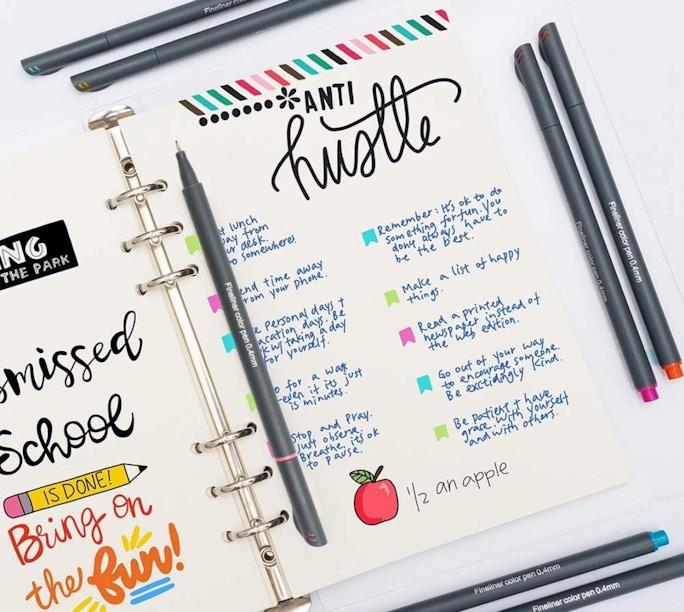 ING
THE PARK
missed
School
IS DONE!
Bring on
the fun!
ANTI
hustle
lunch
from
desk.
somewhere!
time away
from your phone.
Personal days +
days. Be
taking a day
for yourself.
for a walk
even if its just
15 minutes.
Stop and Pray.
Just observe.
Breathe, its ok
to pause.
Remember: It's ok to do
something for fun you
dont always have to
be the best.
Make a list of happy
things.
Read a printed
newspaper instead of
the web edition.
Go out of your way
to encourage someone.
Be excitingly kind.
Be Patient + have
grace with yourself
and with others.
1/2 an apple
Fineliner color pen 0.4mm
Fineliner color pen 0.4mm
Fineliner color pen 0.4mm
Fineliner color pen 0.4mm
Fineliner color pen 0.4mm
Fineliner color pen 0.4mm